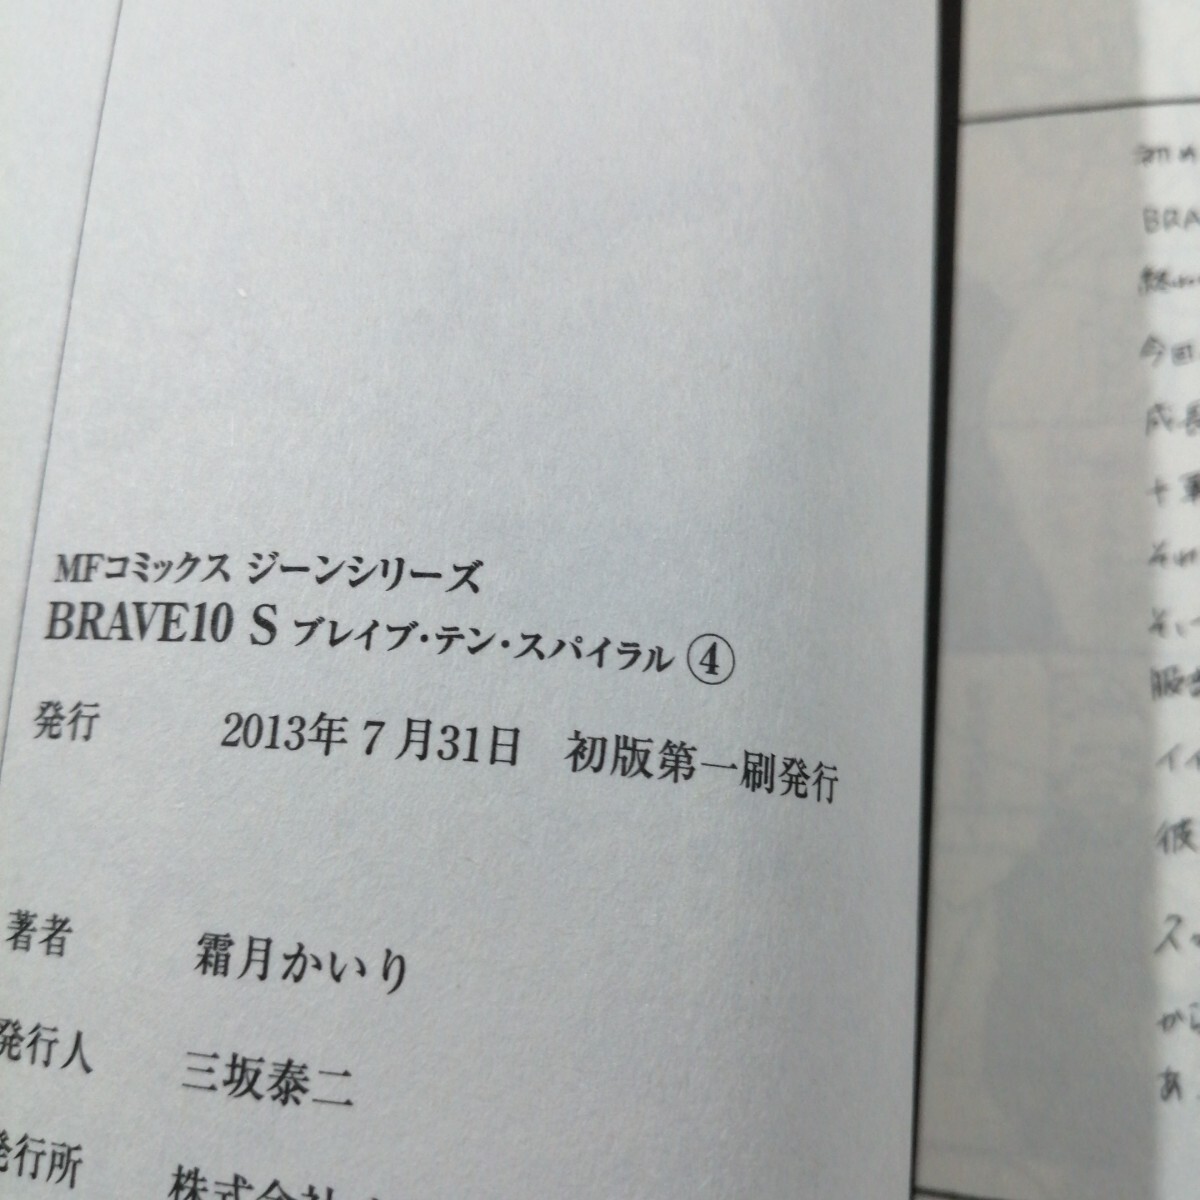 MFコミックス ジーンシリーズ
BRAVE10 S ブレイブ・テン・スパイラル ④
発行 2013年7月31日 初版第一刷発行
著者 霜月かいり
発行人 三坂泰二
発行所 株式会社
BRA
今回
成長
十勇
それ
彼
から
あ